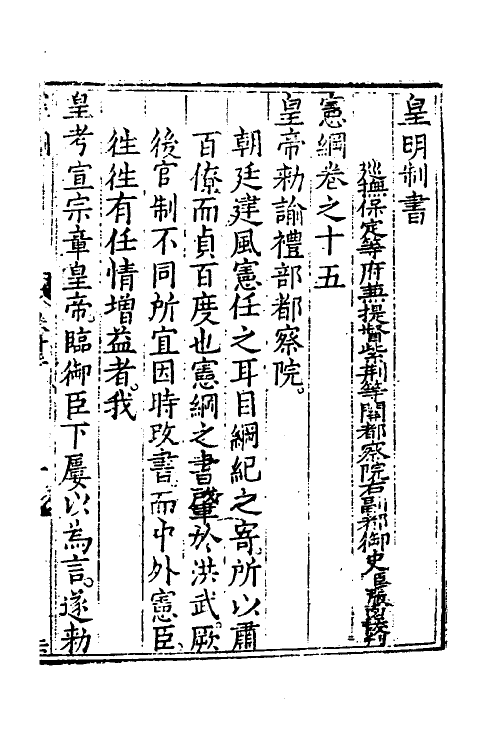 皇明制書
巡撫保定等府兼提督紫荊等關都察院右副都御史臣張鹵校刊
憲綱卷之十五
皇帝勅諭禮部都察院。
朝廷建風憲任之耳目綱紀之寄。所以肅
百僚而貞百度也憲綱之書肇於洪武。厥
後官制不同所宜因時改書。而中外憲臣。
徃徃有任情增益者。我
皇考宣宗章皇帝。臨御臣下屢以為言。遂勅